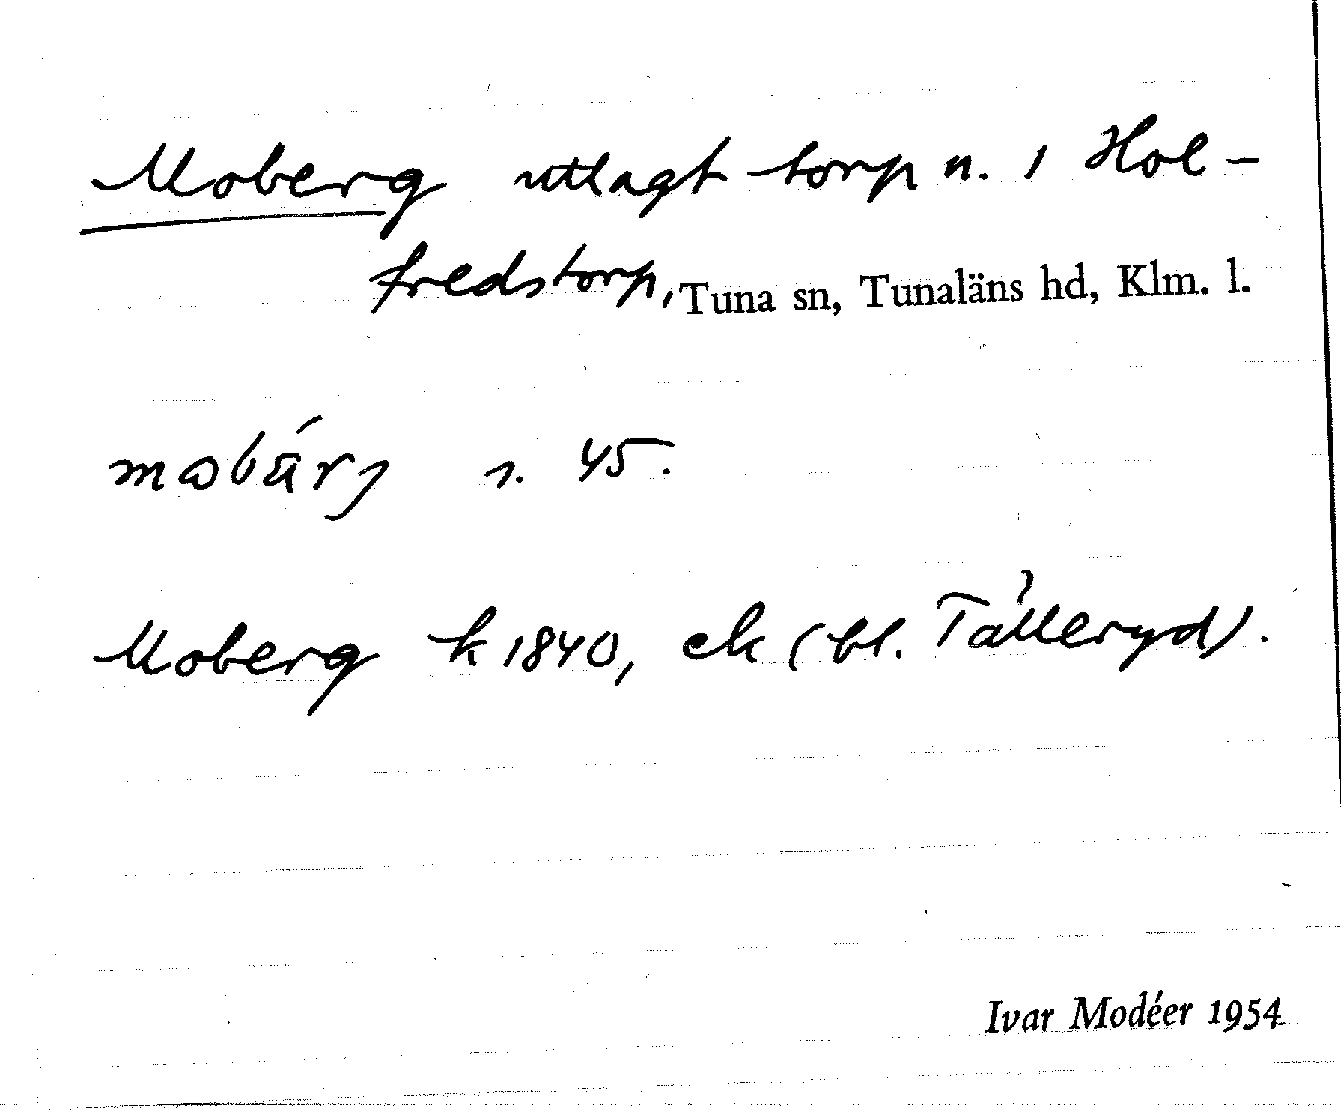 Moberg utlagt torp n. 1 Hol-
fredstorp, Tuna sn, Tunaläns hd, Klm. l.
mobärj s. 45.
Moberg k 1840, ek (bl. Tålleryd).
Ivar Modéer 1954